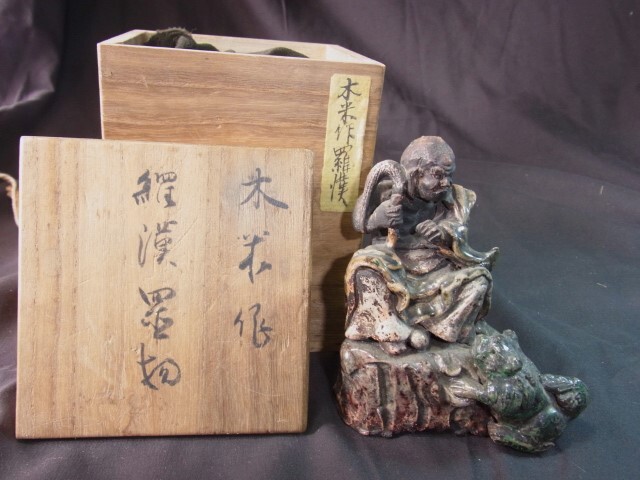 木米作
羅漢置物
木米作羅漢